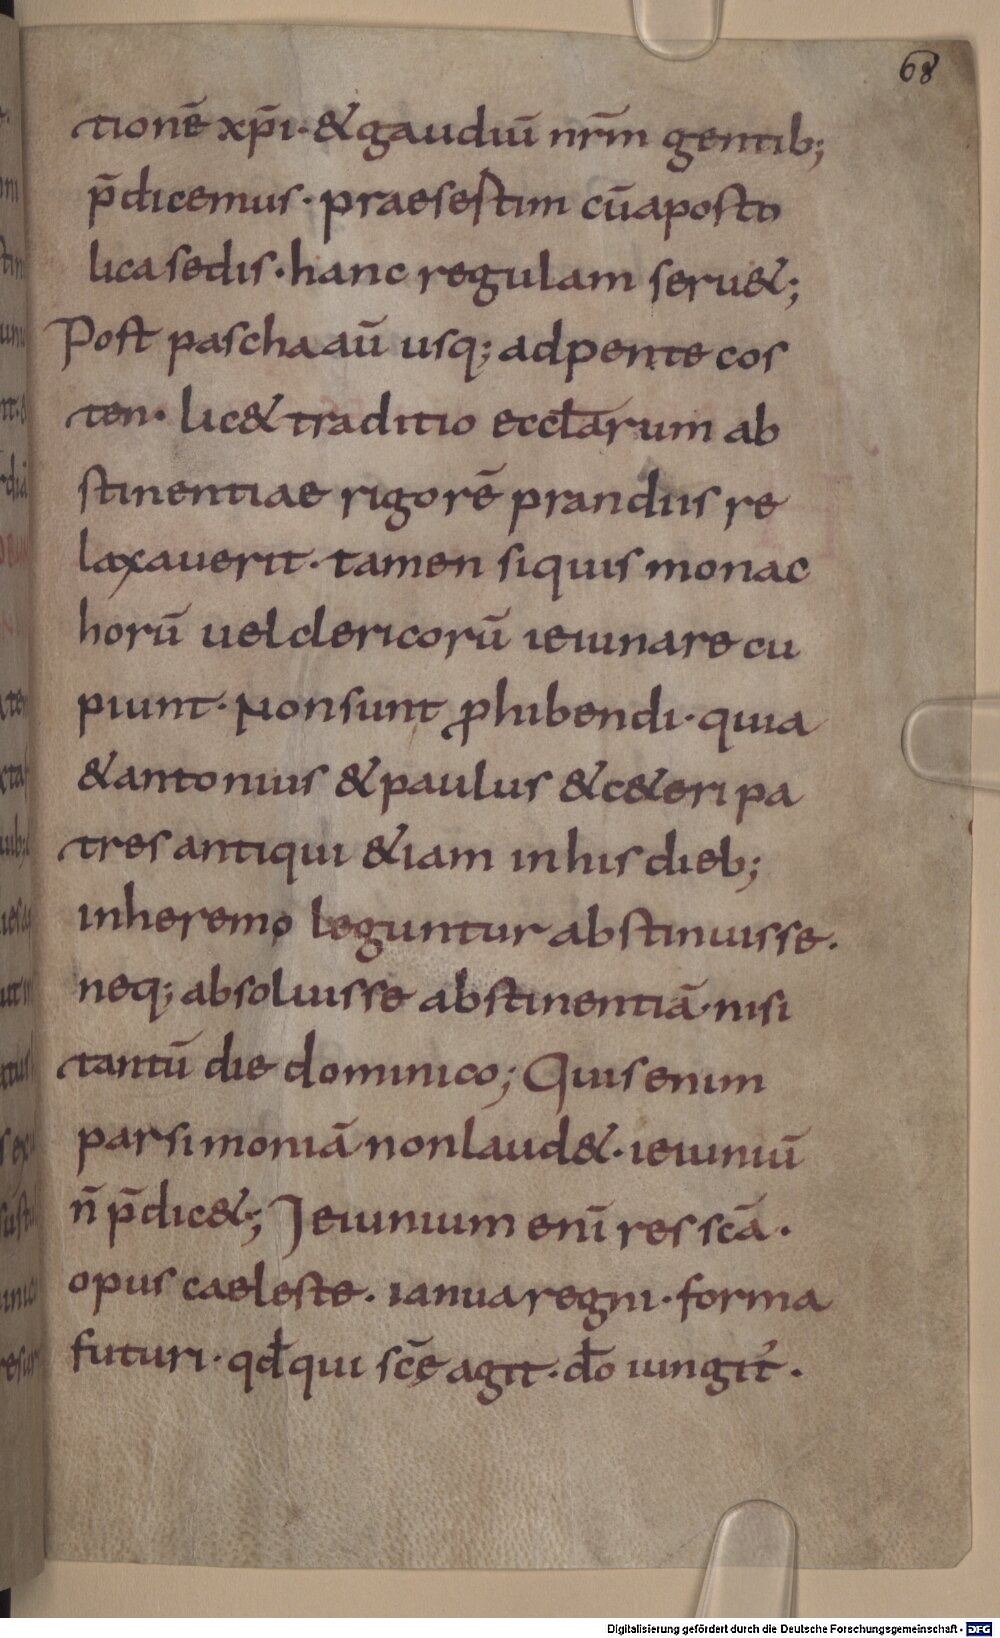 68
tionē xp̄i· & gaudiū nr̄m gentib;
p̄dicemus· praesestim cū aposto
lica sedis· hanc regulam seru&;
Post pascha aū usq; ad pente cos
ten· lic& traditio eccl̄arum ab
stinentiae rigorē prandiis re
laxauerit· tamen si quis monac
horū uel clericorū ieiunare cu
piunt· Non sunt ꝓhibendi· quia
& antonius & paulus & c&eri pa
tres antiqui &iam in his dieb;
in heremo leguntur abstinuisse·
neq; absoluisse abstinentiā· nisi
tantū die dominico; Quis enim
parsimoniā non laud&· ieiuniū
n̄ p̄dic&; Jeiunium enī res scā·
opus caeleste· ianua regni· forma
futuri· qd̄ qui scę̄ agit· dō iungit᷑·
Digitalisierung gefördert durch die Deutsche Forschungsgemeinschaft - DFG